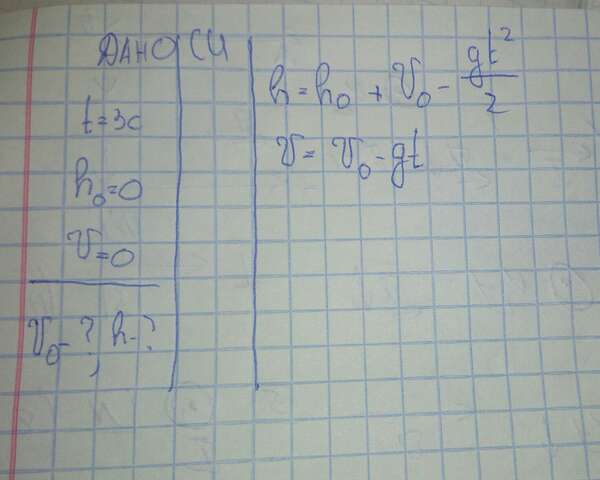 ДАНО СИ
t=3с
h₀=0
V=0
V₀-?, h-?
h=h₀+V₀-gt²/2
V=V₀-gt